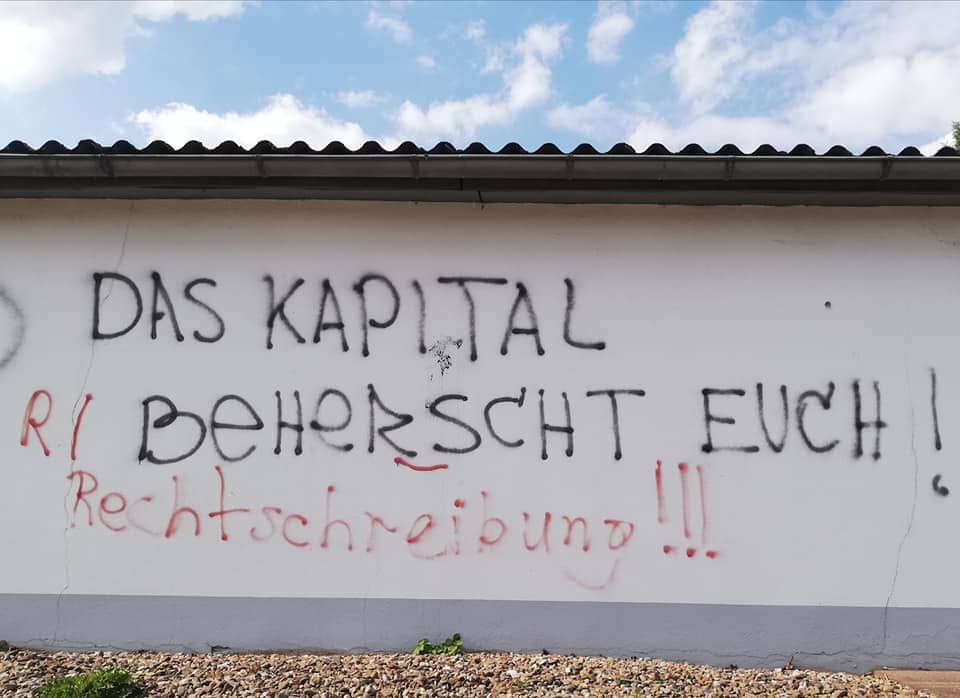 DAS KAPITAL
BEHERSCHT EUCH!
R/
Rechtschreibung!!!